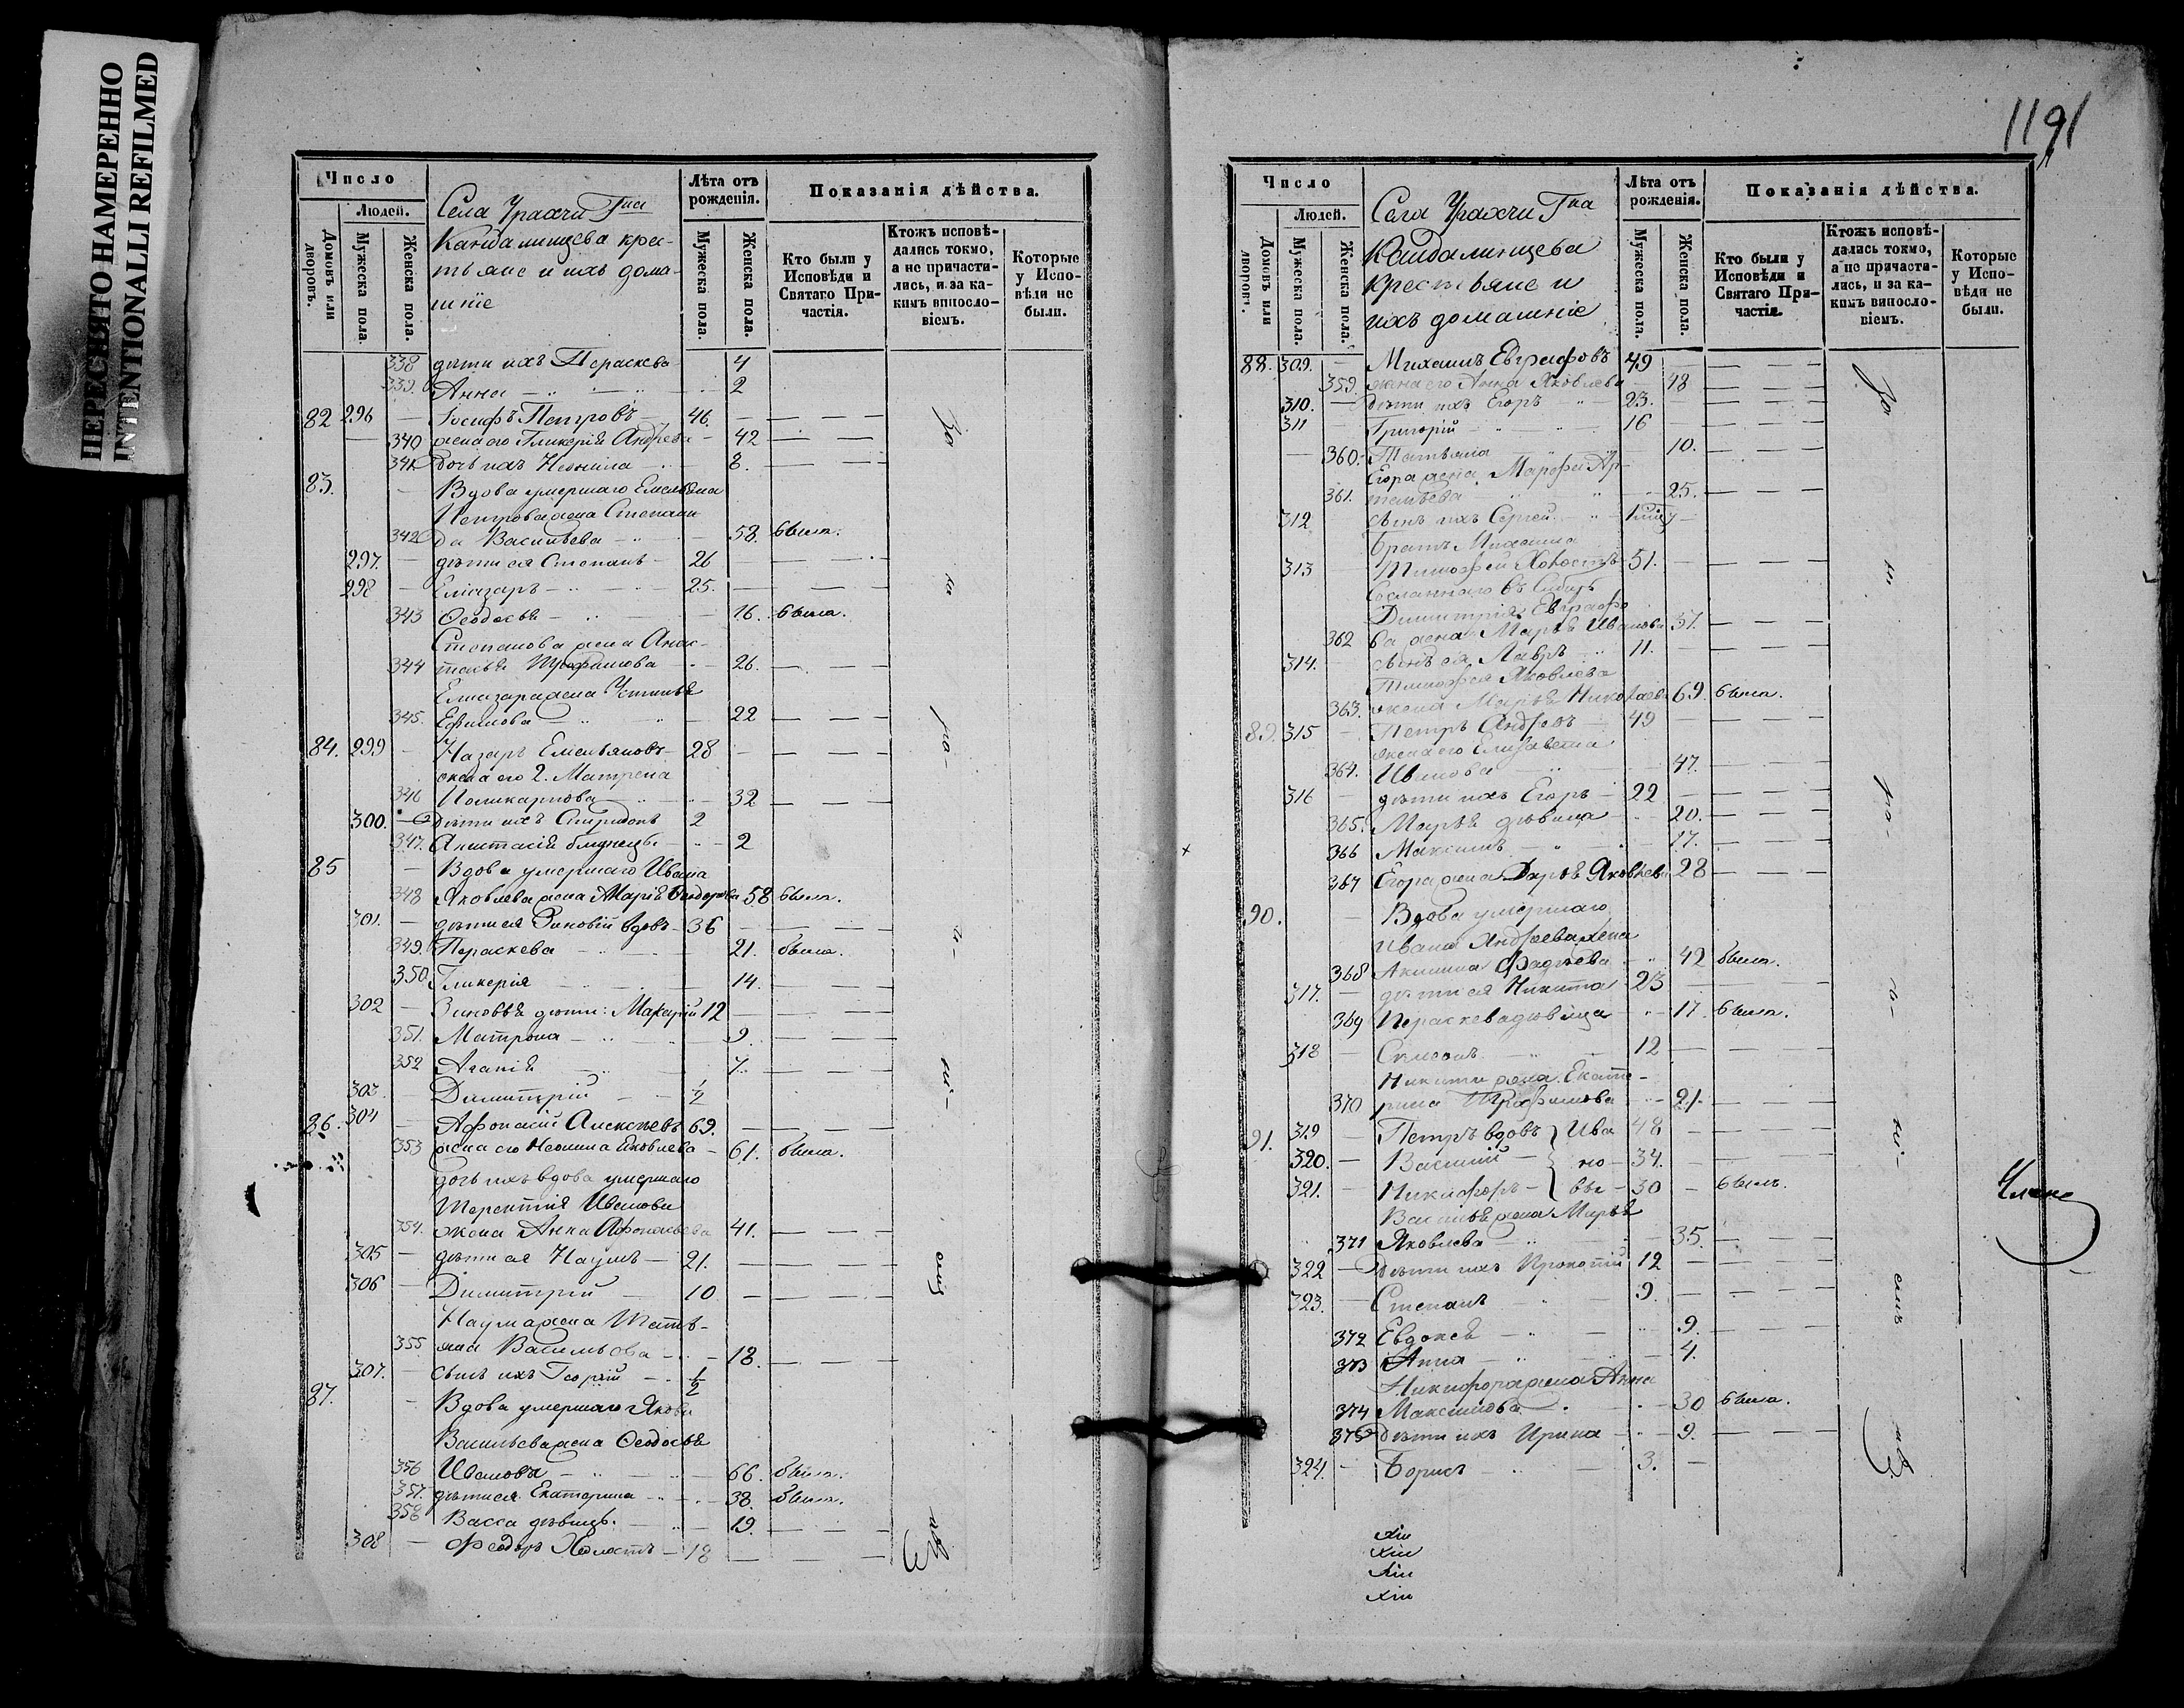 ПЕРЕСНЯТО НАМЕРЕННО
INTENTIONALLI REFILMED
Число
Людей.
Домовъ или дворовъ.
Мужеска пола.
Женска пола.
Села Урахчи Гна
Кандалинцева крес-
тьяне и ихъ дома-
шнiе
Лѣта отъ рожденiя.
Мужеска пола.
Женска пола.
Показанiя дѣйства.
Кто были у Исповѣди и Святаго При-частiя.
Ктожъ исповѣ-дались токмо, а не причасти-лись, и за ка-кимъ винословiемъ.
Которые у Испо-вѣди не были.
338 дѣти ихъ Параскева 4
339. Анна 2
82 296 Iосифъ Петровъ 46.
340 жена его Гликерiя Андреева 42
341 дочь ихъ Неонила 8.
83. Вдова умершаго Емельяна
Петрова жена Степани-
342 да Васильева 58. была.
297. дѣти ея Степанъ 26
298 Елiазаръ 25.
343 Ѳеодосья 16. была.
Степанова жена Анас-
344 тасья Трофимова 26.
Елиазара жена Устинья
345. Ефимова 22
84. 299 Назаръ Емельяновъ 28
жена его 2. Матрена
346 Поликарпова 32
300. дѣти ихъ Спиридонъ 2
347. Анастасiя близнецъ 2
85 Вдова умершаго Ивана
348 Яковлева жена Марiя Ѳедорова 58 была.
301. дѣти ея Зиновiй вдовъ 36
349. Параскева 21. была.
350 Гликерiя 14.
302 Зиновья дѣти: Макарiй 12
351. Матрона 9.
352 Агапiя 7.
303. Димитрiй 1/2
86. 304 Афонасiй Алексеевъ 69.
353 жена его Неонила Яковлева 61. была.
дочь ихъ вдова умершаго
Терентiя Иванова
354. жена Анна Афонасьева 41.
305 дѣти ея Наумъ 21.
306 Димитрiй 10
Наума жена Татья-
355 яна Васильева 18.
307. сынъ ихъ Георгiй 1/2
87. Вдова умершаго Якова
Васильева жена Ѳеодосья
356 Иванова 66. была.
357. дѣти ея Екатерина 38. была.
358 Васса дѣвица 19.
308 Ѳеодоръ Холостъ 18
1191
Число
Людей.
Домовъ или дворовъ.
Мужеска пола.
Женска пола.
Села Урахчи Гна
Кандалинцева
крестьяне и
ихъ домашнiе
Лѣта отъ рожденiя.
Мужеска пола.
Женска пола.
Показанiя дѣйства.
Кто были у Исповѣди и Святаго При-частiя.
Ктожъ исповѣ-дались токмо, а не причасти-лись, и за ка-кимъ винословiемъ.
Которые у Испо-вѣди не были.
88. 309. Михаилъ Евграфовъ 49
359. жена его Анна Яковлева 48
310. дѣти ихъ Егоръ 23.
311 Григорiй 16
360. Татьяна 10.
Егора жена Марфа Ар-
361. темьева 25.
312 сынъ ихъ Сергей
Братъ Михаила
313 Тимофей Холостъ 51.
Сосланнаго въ Сибирь
Димитрiя Евграфо-
362 ва жена Марья Иванова 37.
314. сынъ ея Лавръ 11.
Тимофея Яковлева
363. жена Марья Николаева 69. была.
89. 315 Петръ Андреевъ 49
жена его Елизавета
364. Иванова 47.
316 дѣти ихъ Егоръ 22
365. Марья дѣвица 20.
366 Максимъ 17.
367 Егора жена Дарья Яковлева 28
90. Вдова умершаго
Ивана Андреева жена
368 Акилина Фадѣева 42 была.
317. дѣти ея Никита 23
369 Параскева дѣвица 17. была.
318 Симеонъ 12
Никиты жена Екате-
370 рина Трофимова 21.
91. 319 Петръ вдовъ } Ива 48
320. Василiй } но 34.
321. Никифоръ } вы 30 былъ.
Василья жена Марья
371 Яковлева 35.
322 дѣти ихъ Прокопiй 12
323. Степанъ 9.
372 Евдокiя 9.
373 Анна 4.
Никифора жена Анна
374 Максимова 30 была.
375 дѣти ихъ Ирина 9.
324. Борисъ 3.